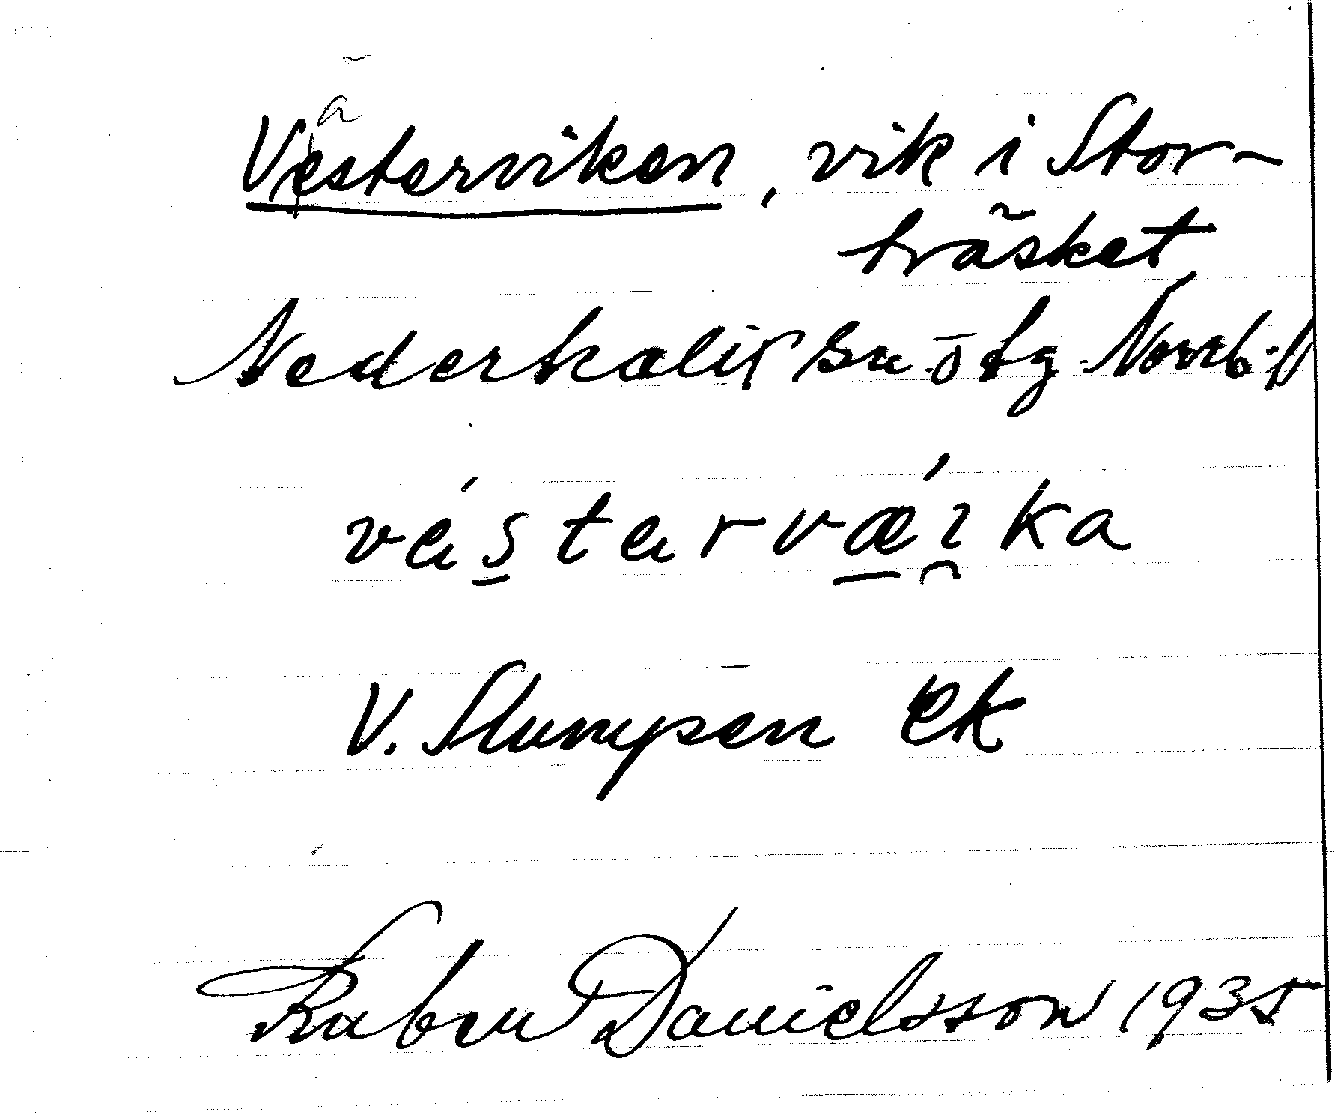 Vesterviken, vik i Stor-
träsket
Nederkalix sn ö tg Norrb. l
västarvæika
V. Slumpen Ek
Ruben Danielsson 1935